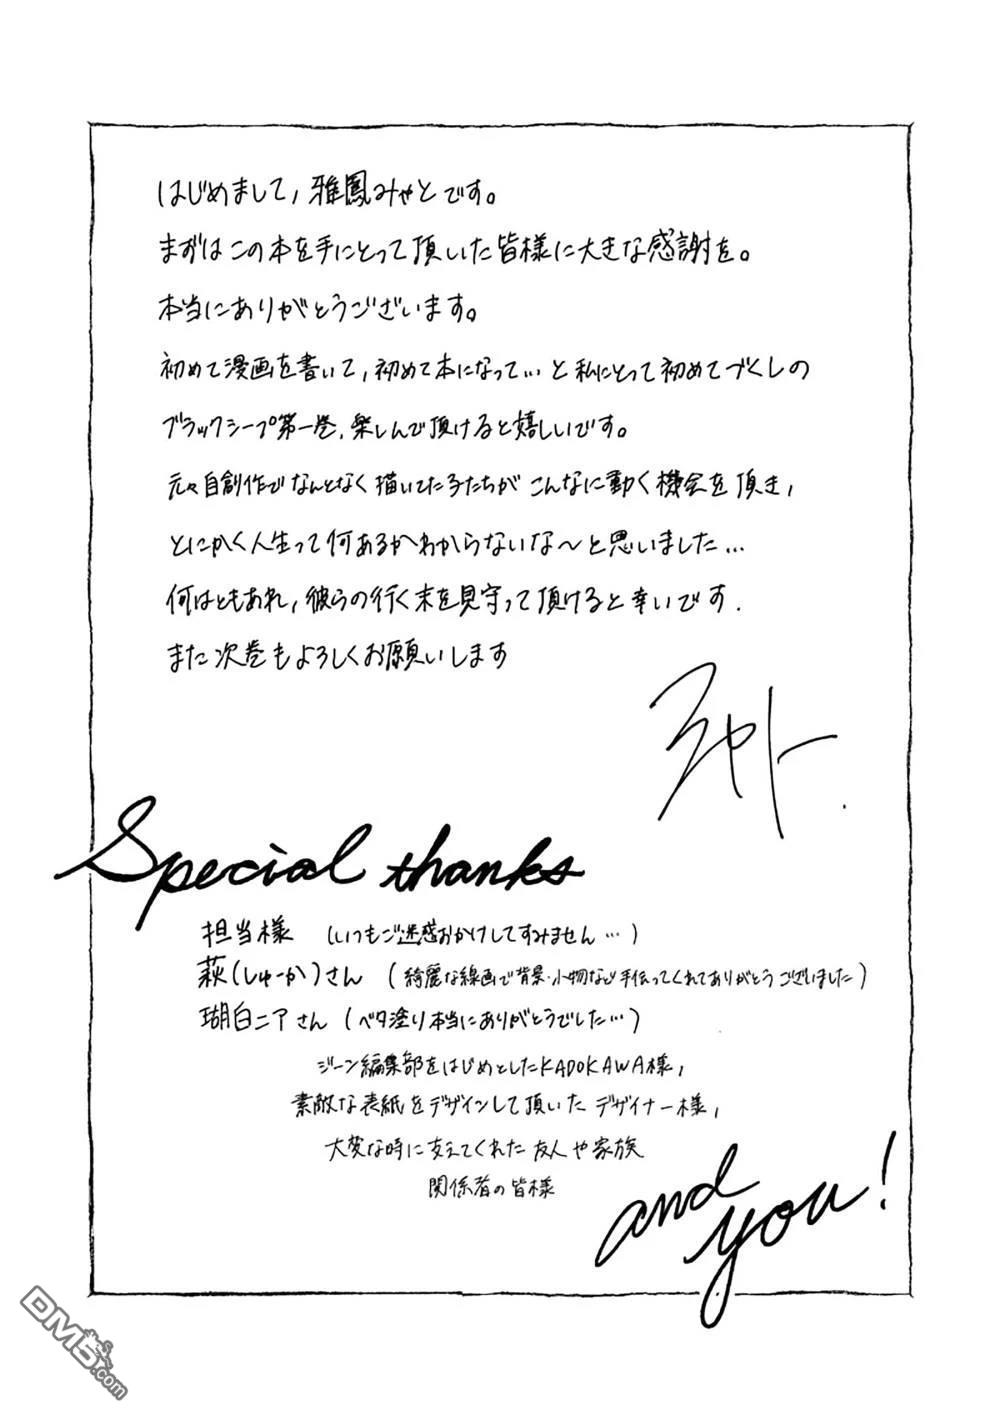 はじめまして、雅鳳みやとです。
まずはこの本を手にとって頂いた皆様に大きな感謝を。
本当にありがとうございます。
初めて漫画を書いて、初めて本になって…と私にとって初めてづくしの
ブラックシープ第一巻、楽しんで頂けると嬉しいです。
元々自創作でなんとなく描いてた子たちがこんなに動く機会を頂き、
とにかく人生って何あるかわからないな〜と思いました…
何はともあれ、彼らの行く末を見守って頂けると幸いです.
また次巻もよろしくお願いします
みやト.
Special thanks
担当様 (いつもご迷惑おかけしてすみません…)
萩(しゅーか)さん (綺麗な線画で背景・小物など手伝ってくれてありがとうございました)
瑚白ニアさん (ベタ塗り本当にありがとうでした…)
ジーン編集部をはじめとしたKADOKAWA様、
素敵な表紙をデザインして頂いたデザイナー様、
大変な時に支えてくれた友人や家族
関係者の皆様
and you!
DM5.com